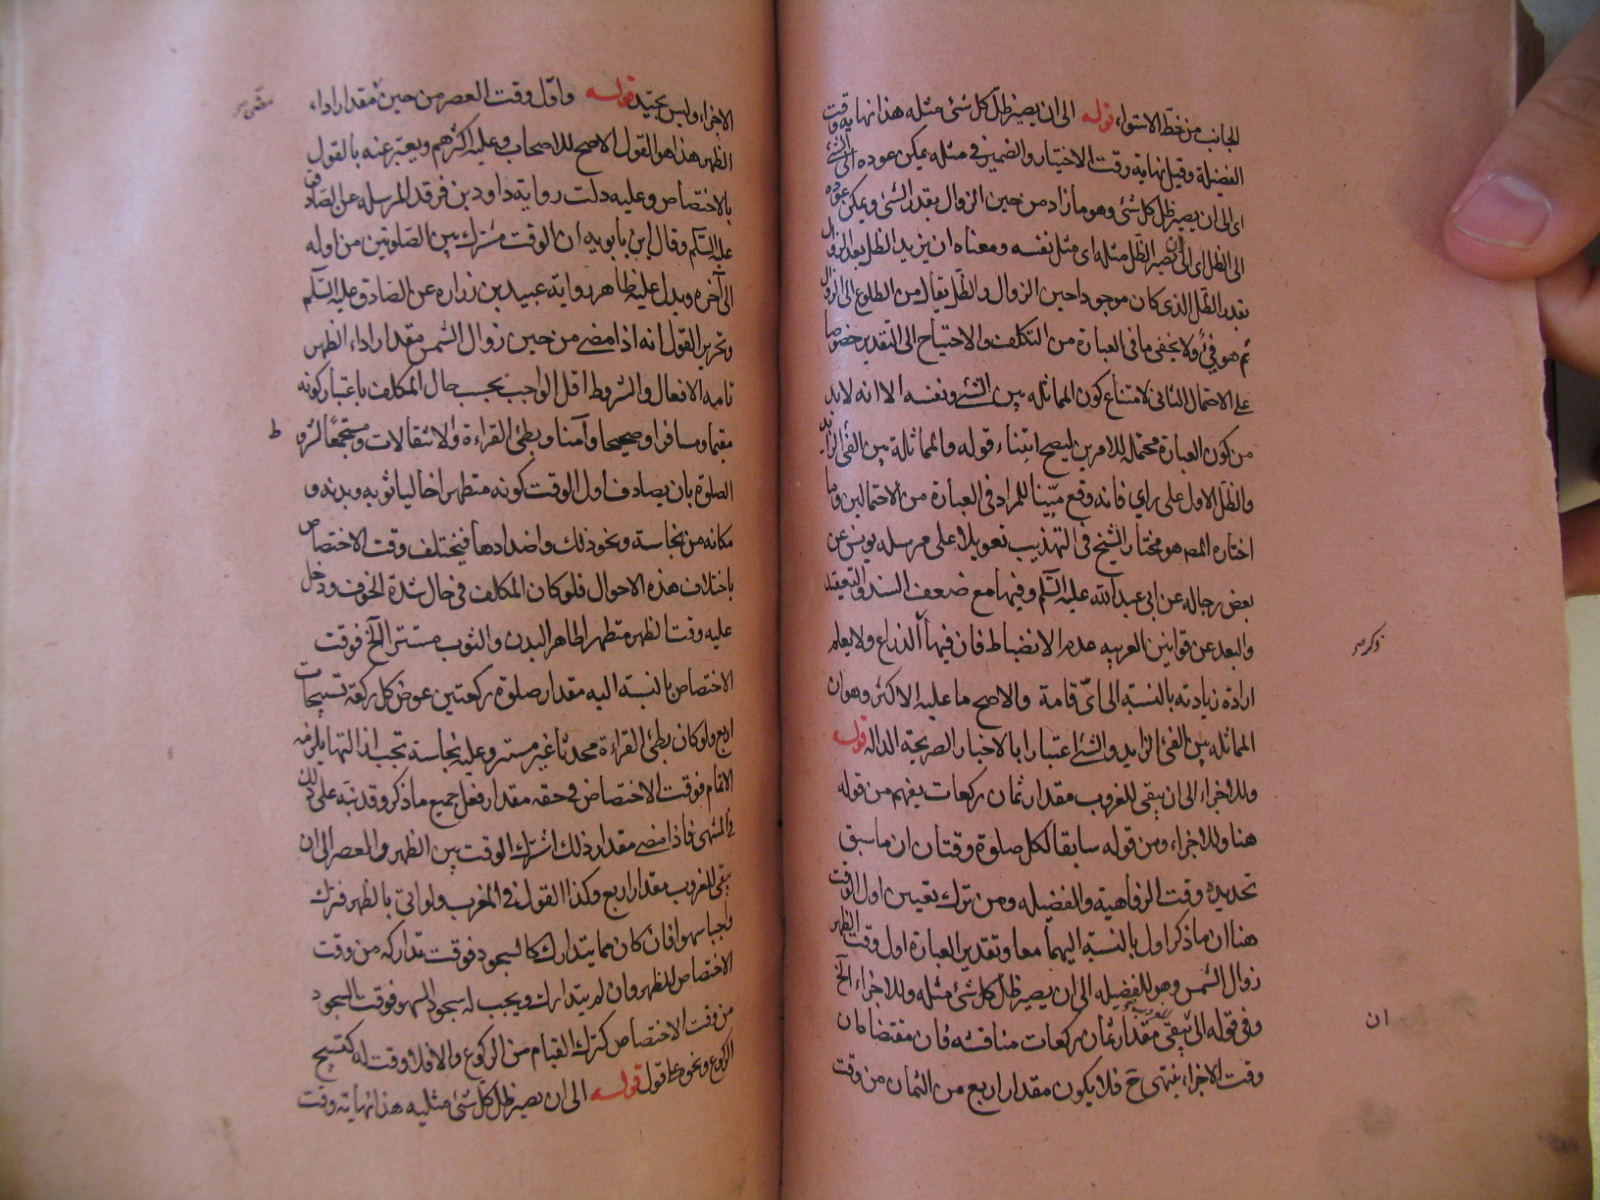 الجانب من خط الاستواء قوله الى ان يصير ظل كل شئ مثله هذا نهاية وقت
الفضيلة وقيل نهاية وقت الاختيار والضمير في مثله يمكن عوده الى الشئ
اى الى ان يصير ظل كل شئ وهو ما زاد من حين الزوال بقدر الشئ ويمكن عوده
الى الظل اى الى ان يصير الظل مثله اى مثل نفسه ومعناه ان يزيد الظل بعد الزوال
بقدر الظل الذى كان موجودا حين الزوال والظل يقال من الطلوع الى الزوال
ثم هو فئ ولا يخفى ما فى العبارة من التكلف والاحتياج الى التقدير خصوصا
على الاحتمال الثانى لامتناع كون المماثله بين الشئ ونفسه الا انه لابد
من كون العبارة محتمله للامرين ليصح ابتناء قوله والمماثلة بين الفئ الزايد
والظل الاول على راي فانه وقع مبينا للمراد فى العبارة من الاحتمالين وما
اختاره المص هو مختار الشيخ فى التهذيب تعويلا على مرسله يونس عن
بعض رجاله عن ابى عبد الله عليه السلم وفيها مع ضعف السند والتعقيد
والبعد عن قوانين العربيه عدم الانضباط فان فيها الذراع ولا يعلم
ذكر صر
ارادة زيادته بالنسبة الى اىّ قامة والاصح ما عليه الاكثر وهو ان
المماثله بين الفئ الزايد والشئ اعتبارا بالاخبار الصريحة الداله قوله
وللاجزاء الى ان يبقى للغروب مقدار ثمان ركعات يفهم من قوله
هنا وللاجزاء ومن قوله سابقا لكل صلوة وقتان ان ما سبق
تحديده وقت الرفاهية والفضيله ومن ترك تعيين اول الوقت
هنا ان ما ذكر اول بالنسبة اليهما معا وتقدير العبارة اول وقت الظهر
زوال الشمس وهو للفضيله الى ان يصير ظل كل شئ مثله وللاجزاء الخ
وفى قوله الى يبقى مقدار ثمان ركعات مناقشه فان مقتضاه كان
ان
وقت الاجزاء ينتهى ح فلا يكون مقدار اربع من الثمان من وقت
الاجزاء وليس بجيّد قوله واول وقت العصر من حين مقدار اداء
مضى صر
الظهر هذا هو القول الاصح للاصحاب وعليه اكثرهم ويعبر عنه بالقول
بالاختصاص وعليه دلت رواية داود بن فرقد المرسله عن الصادق
عليه السلم وقال ابن بابويه ان الوقت مشترك بين الصلوتين من اوله
الى آخره ويدل عليه ظاهر رواية عبيد بن زراره عن الصادق عليه السلم
وتحرير القول انه اذا مضى من حين زوال الشمس مقدار اداء الظهر
تامه الافعال والشروط اقل الواجب بحسب حال المكلف باعتبار كونه
مقيما ومسافرا وصحيحا وآمنا وبطئ القراءة والانتقالات ومستجمعا لشرو
ط
الصلوة بان يصادف اول الوقت كونه متطهرا خاليا ثوبه وبدنه و
مكانه من نجاسة ونحو ذلك واضدادها فيختلف وقت الاختصاص
باختلاف هذه الاحوال فلو كان المكلف فى حال شدة الخوف ودخل
عليه وقت الظهر متطهرا طاهر البدن والثوب مستترا الخ فوقت
الاختصاص بالنسبة اليه مقدار صلوة ركعتين عوض كل ركعة تسبيحات
اربع ولو كان بطئ القراءة محدثا غير مستتر وعليه نجاسة تجب ازالتها يلزمه
الاتمام فوقت الاختصاص فى حقه مقدار فعل جميع ما ذكر وقد نبه على ذلك
فى المنتهى فاذا مضى مقدار ذلك اشترك الوقت بين الظهر والعصر الى ان
يبقى للغروب مقدار اربع وكذا القول فى المغرب ولو اتى بالظهر فترك
واجبا سهوا فان كان مما يتدارك كالسجود فوقت تداركه من وقت
الاختصاص للظهر وان لم يتدارك ويجب له سجود السهو فوقت السجود
من وقت الاختصاص كترك القيام من الركوع والا فلا وقت له كتسبيح
الركوع ونحوه على قول قوله الى ان يصير ظل كل شئ مثليه هذا نهاية وقت